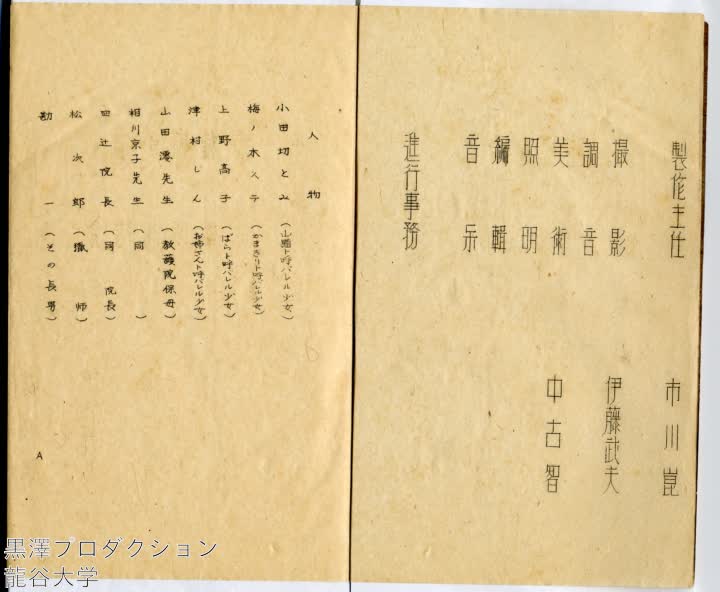 製作主任 市川崑
撮影 伊藤武夫
調音
美術 中古智
照明
編輯
音楽
進行事務
人物
小田切とみ（山猫ト呼バレル少女）
梅ノ木ステ（かまきりト呼バレル少女）
上野高子（ばらト呼バレル少女）
津村しん（お姉さんト呼バレル少女）
山田澄先生（教護院保母）
相川京子先生（同）
四辻院長（同 院長）
松次郎（猟師）
勘一（その長男）
A
黒澤プロダクション
龍谷大学